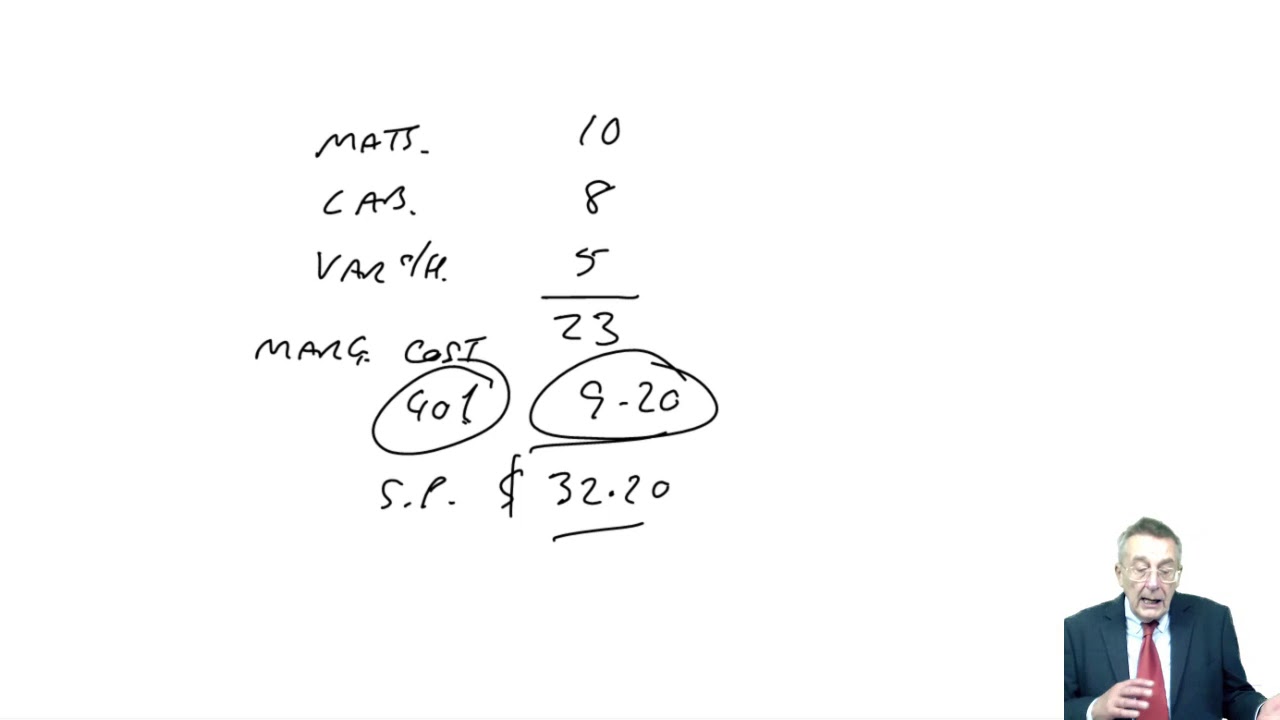 MATS. 10
LAB. 8
VAR O/H. 5
23
MARG. COST
40% 9.20
S.P. $ 32.20